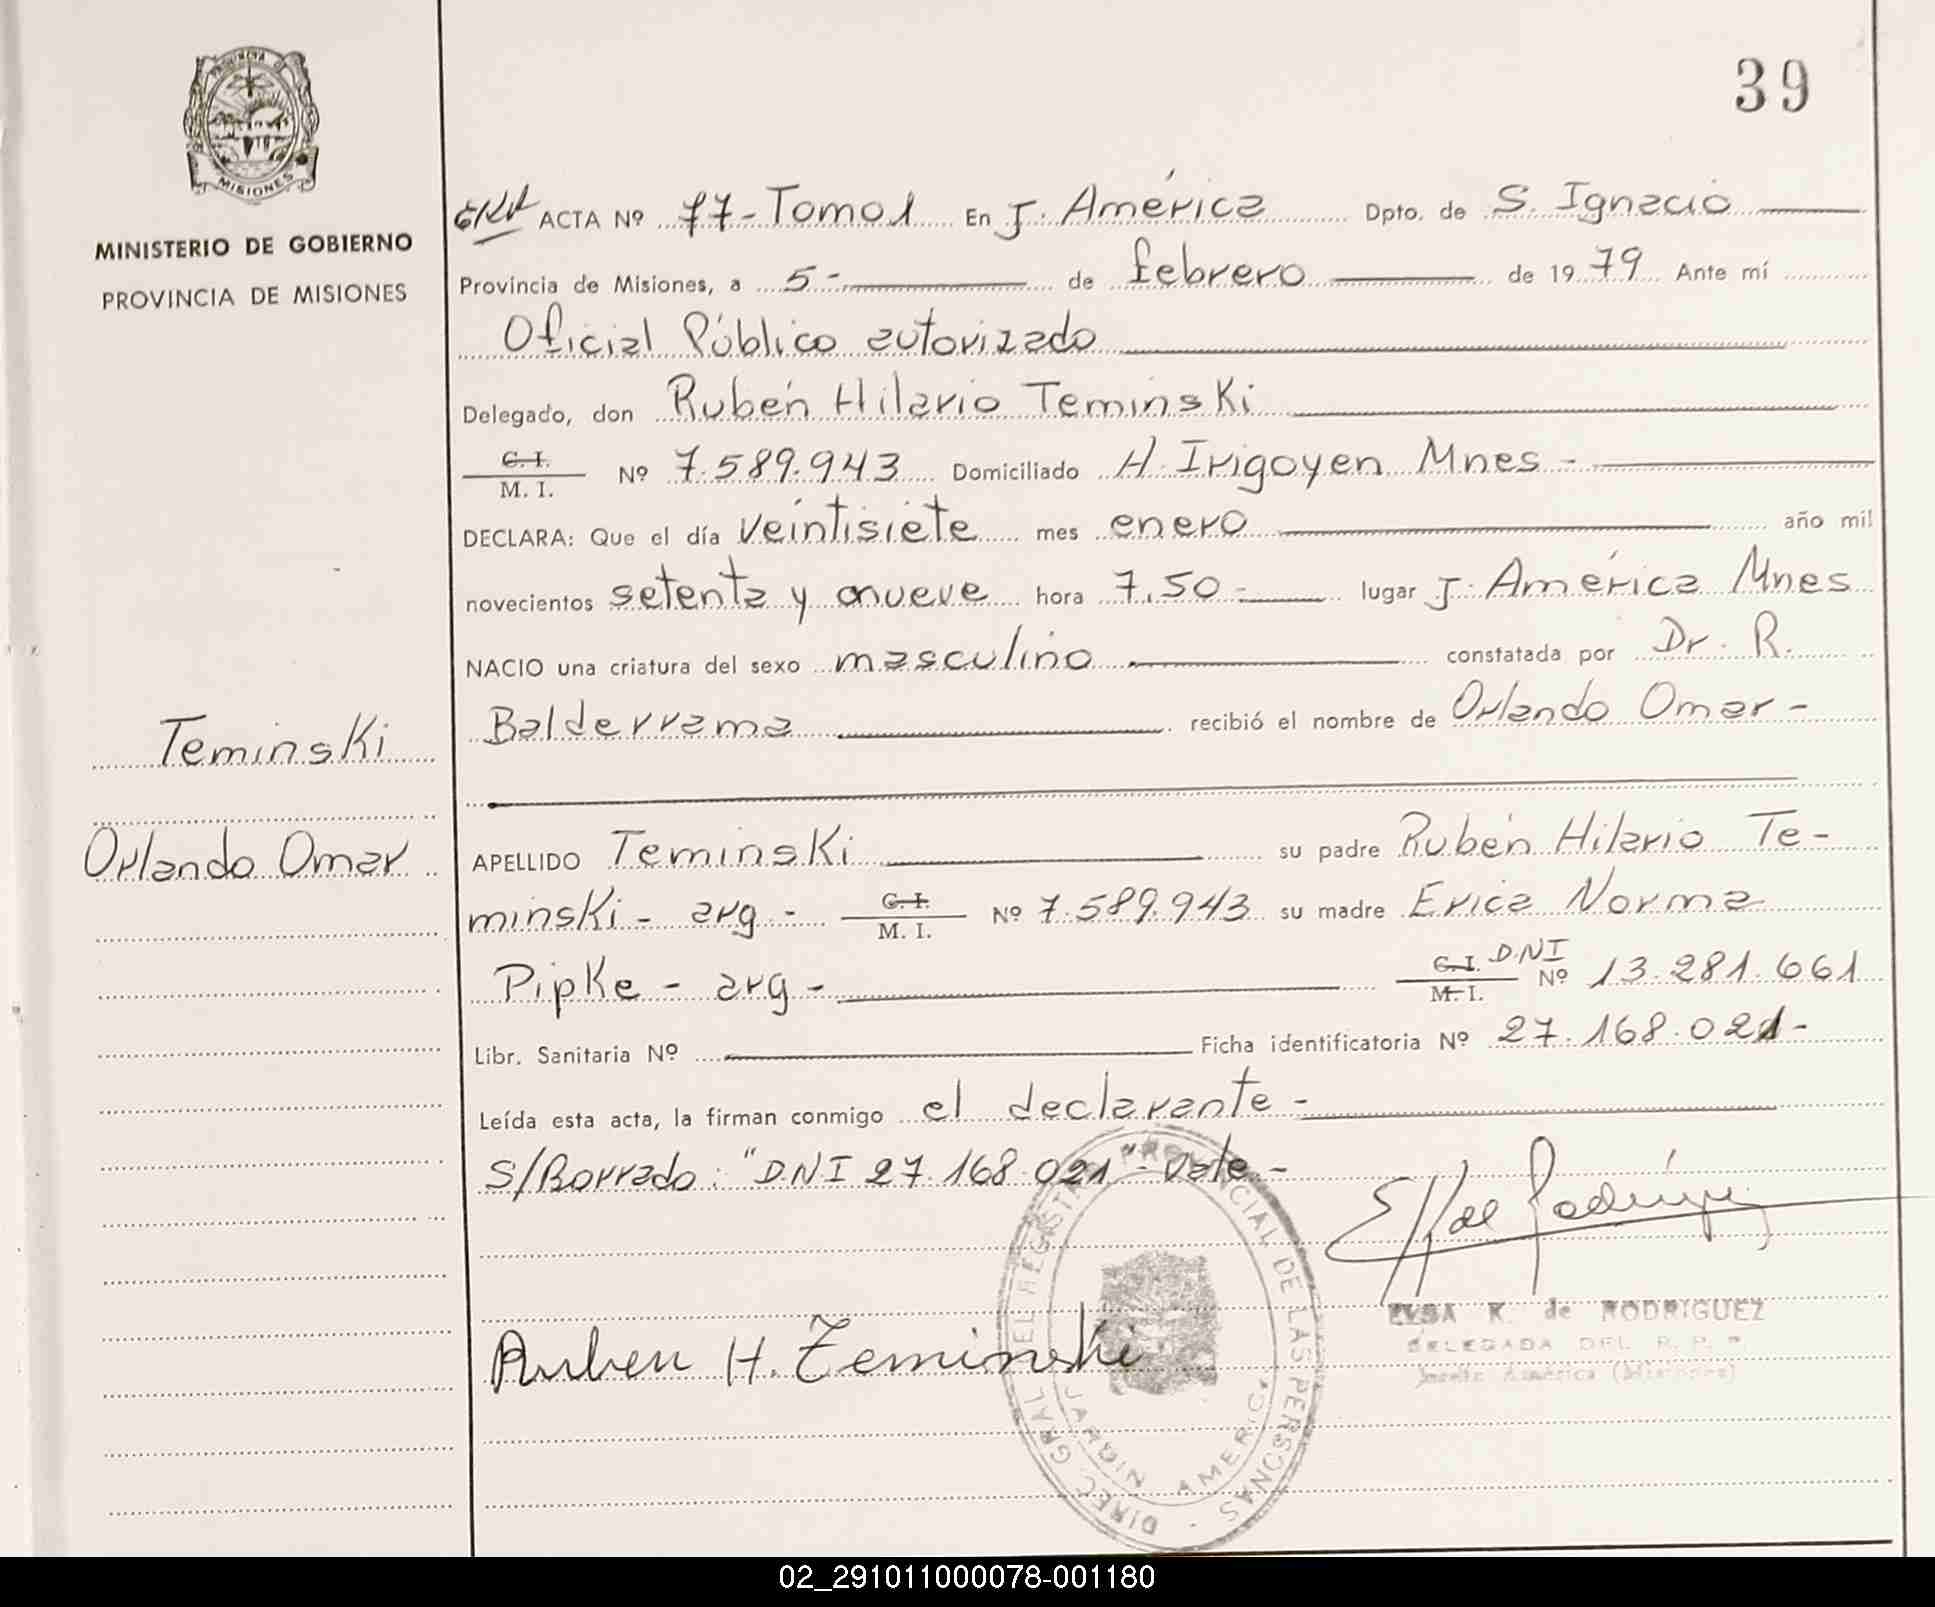 39
PROVINCIA DE
MISIONES
MINISTERIO DE GOBIERNO
PROVINCIA DE MISIONES
ACTA Nº 77-Tomo1 En J. América Dpto. de S. Ignacio
Provincia de Misiones, a 5- de febrero de 1979 Ante mí
Oficial Público autorizado
Delegado, don Rubén Hilario Teminski
C. I.
M. I. Nº 7.589.943 Domiciliado H. Irigoyen Mnes -
DECLARA: Que el día veintisiete mes enero año mil
novecientos setenta y nueve hora 7,50- lugar J. América Mnes
NACIO una criatura del sexo masculino constatada por Dr. R.
Balderrama recibió el nombre de Orlando Omar -
Teminski
Orlando Omar
APELLIDO Teminski su padre Rubén Hilario Te-
minski - arg - C. I.
M. I. Nº 7.589.943 su madre Erica Norma
Pipke - arg - C. I. DNI
M. I. Nº 13.281.661
Libr. Sanitaria Nº Ficha identificatoria Nº 27.168.021-
Leída esta acta, la firman conmigo el declarante -
S/Borrado: "DNI 27.168.021" - Vale -
Ruben H. Teminski
DIREC. GRAL DEL REGISTRO PROVINCIAL DE LAS PERSONAS -
JARDIN AMERICA
E K de Rodríguez
ELSA K. de RODRIGUEZ
DELEGADA DEL R. P. P.
Jardín América (Misiones)
02_291011000078-001180